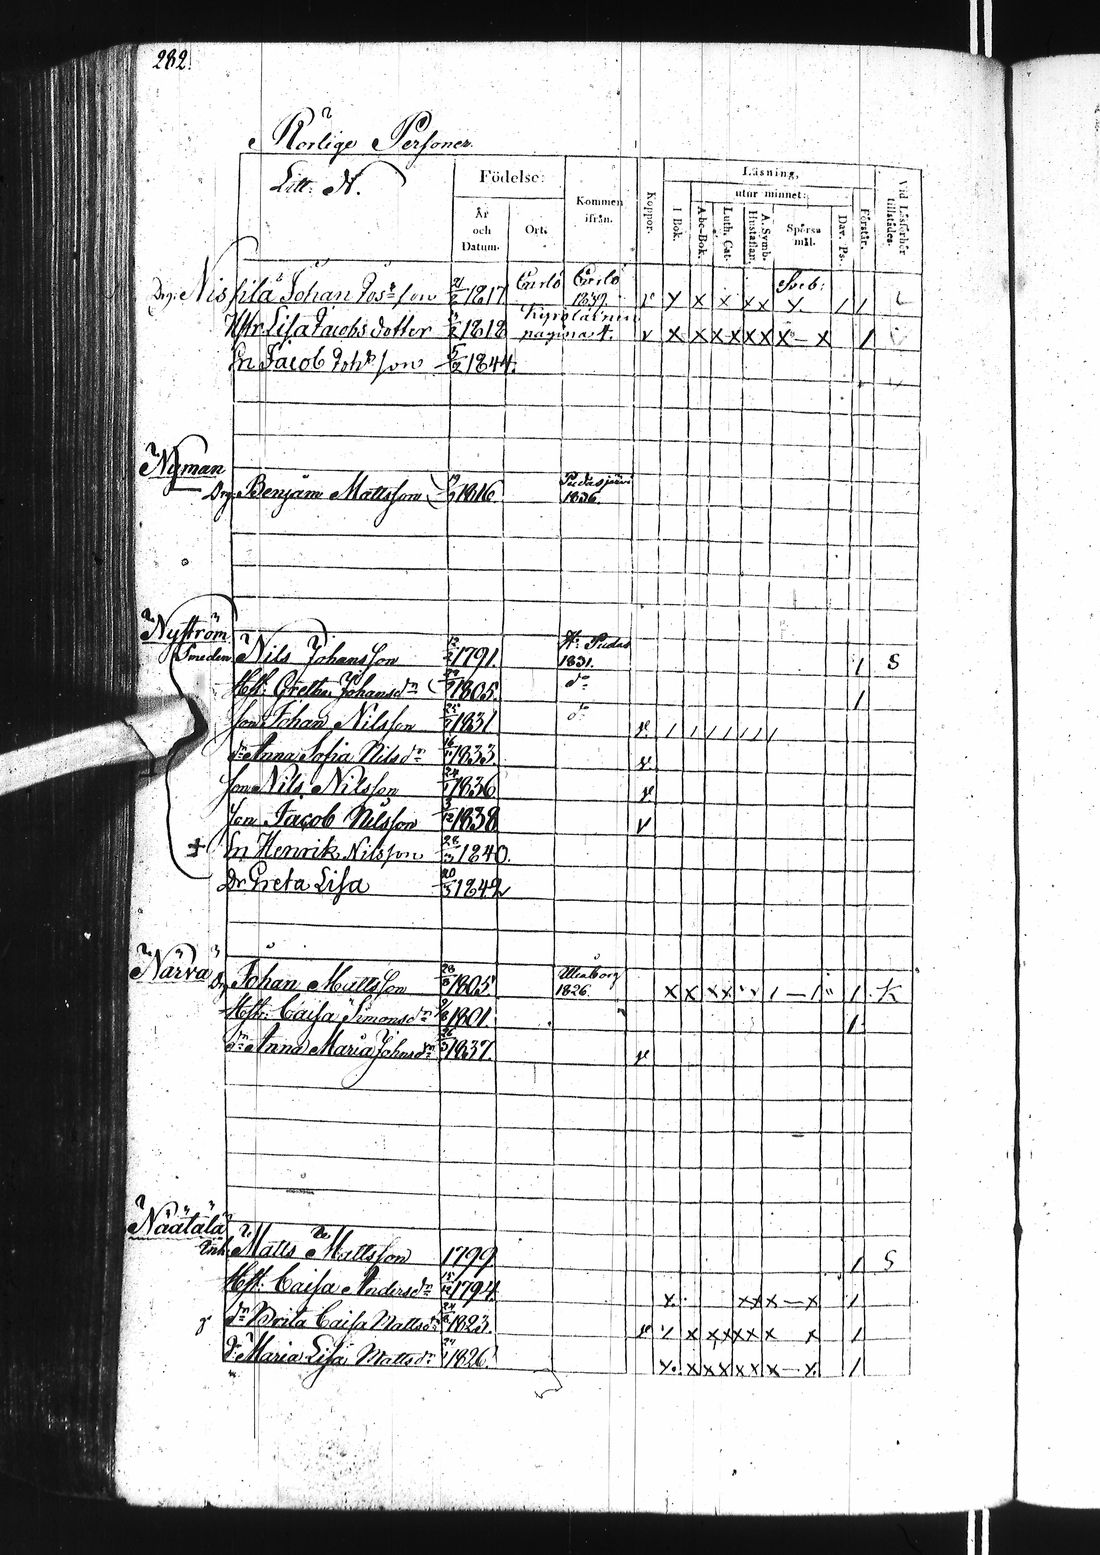 282.
Rörlige Personer
Litt: N.
Födelse:
År och Datum.
Ort.
Kommen ifrån.
Koppor.
Läsning,
utur minnet:
I Bok.
A-be-Bok.
Luth. Cat.
A. Symb. Hustaflan.
Spörsmål.
Dav. Ps.
Förstår.
Vid Läseförhör tillstädes.
Sveb:
Drg: Nissilä Johan Jos:son 21/2 1817 Carlö Carlö 1839. v x x x x x x. / /
Hstr Lisa Jacobsdotter 1818 pagina 4. v x x x x x x x — x /
Sn Jacob Joh:son 5/2 1844.
Nyman
Drg Benjam Mattsson 1816. Pudasjärvi 1836.
Nyström
Smeden Nils Johansson 12/2 1791. Pudas 1831. / S
Hst. Greta Johansdn 1805. do /
son Johan Nilsson 25/7 1831 do v. / / / / / / /
dn Anna Sofia Nilsdn 16/11 1833. v.
son Nils Nilsson 24/1 1836 v.
son Jacob Nilsson 3/12 1838 v
‡ Sn Henrik Nilsson 28/3 1840.
Dr Greta Lisa 20/5 1842
Närvä
Drg Johan Mattsson 28/8 1805 Uleåborg 1826. x x x x " " / — / " / K
Hstr: Caisa Simonsdn 9/8 1801. /
dn Anna Maria Johnsdn 26/5 1837. v
Näätälä
Inh. Matts Mattsson 1799. / S
Hst. Caisa Andersdn 15/12 1794. x. x x x — x /
dn Brita Caisa Mattsdn 24/8 1823. v / x x x x x x x /
dr Maria Lisa Mattsdn 1826. x. x x x x x x — x. /